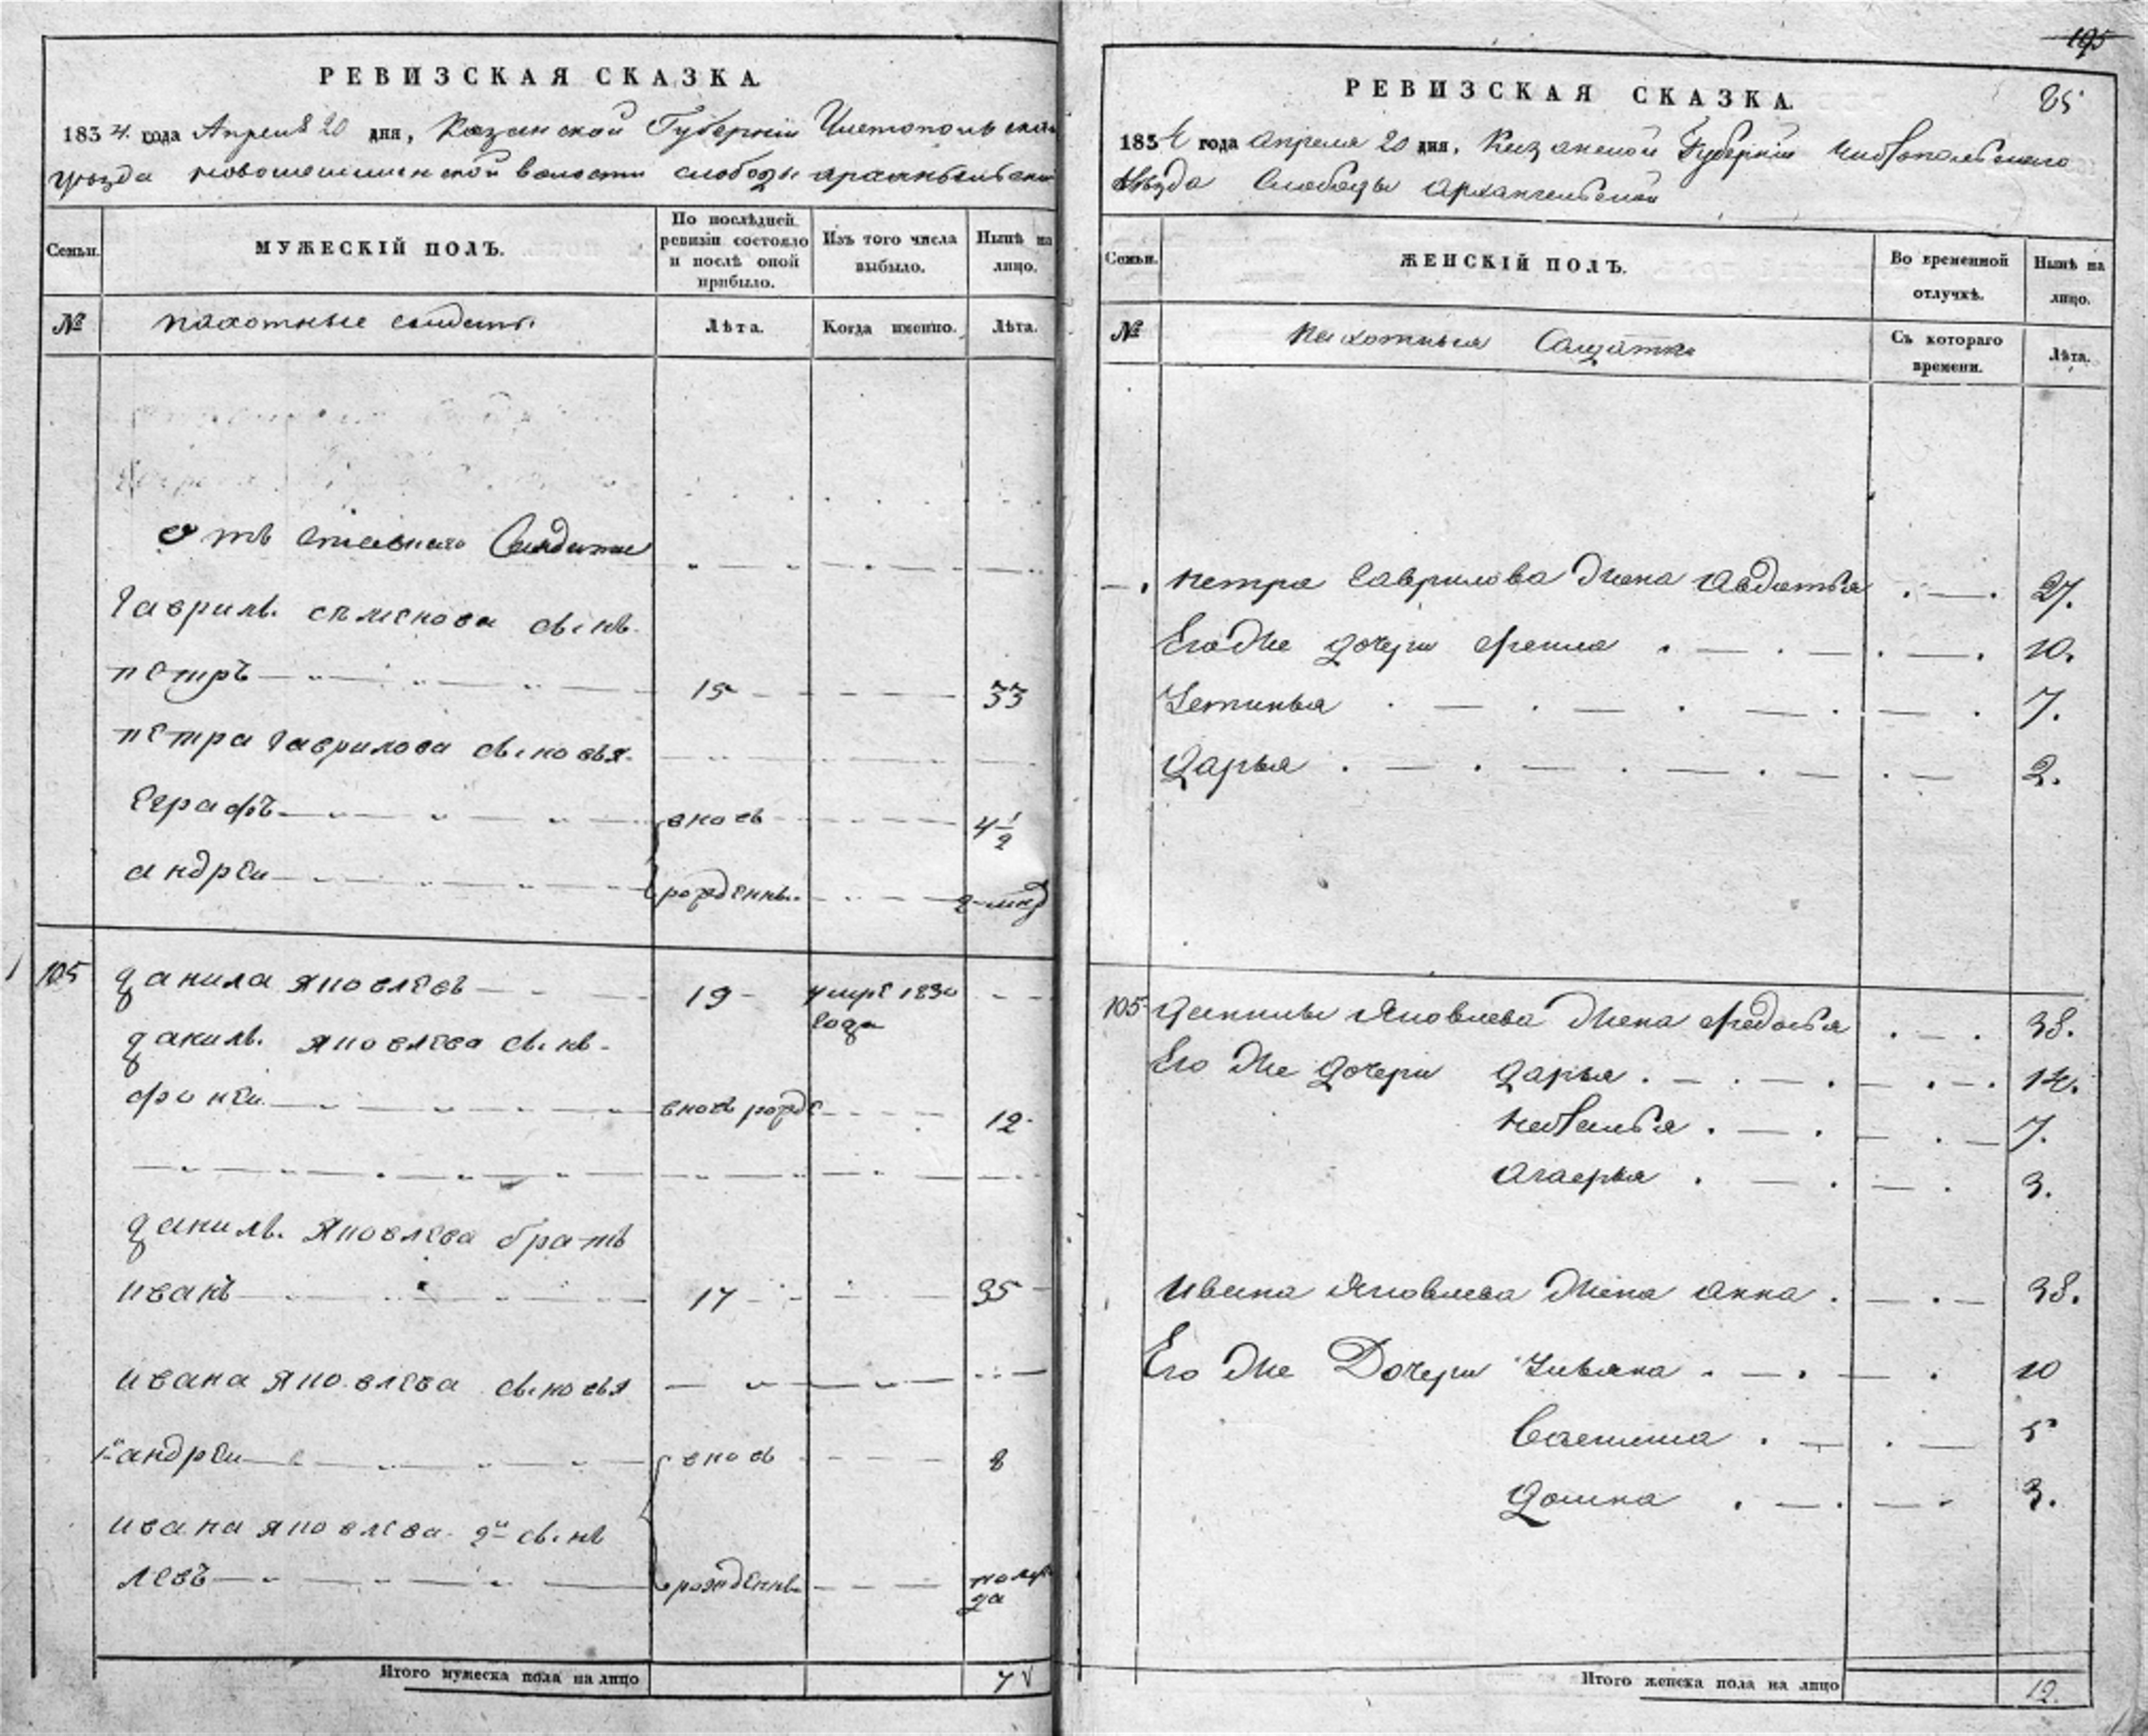 РЕВИЗСКАЯ СКАЗКА.
1834. года Апреля 20 дня, Казанской Губернiи Чистопольской
уезда новошешминской волости слободы архангельской
Семьи.
МУЖЕСКIЙ ПОЛЪ.
По послѣдней ревизiи состояло и послѣ оной прибыло.
Изъ того числа выбыло.
Нынѣ на лицо.
№
пахотные солдаты.
Лѣта.
Когда именно.
Лѣта.
отъ Солдата
гаврилы семенова сынъ
петръ 15 33
петра гаврилова сыновья
еграфъ вновь 4 1/2
андреи рожденны
105 данила яковлевъ 19 умре 1830
года
данилы яковлева сынъ
фокеи вновь рожде 12
данилы яковлева братъ
иванъ 17 35
ивана яковлева сыновья
1й андреи вновь 8
ивана яковлева 2й сынъ
левъ рожденны полго
да
Итого мужеска пола на лицо 7
195
РЕВИЗСКАЯ СКАЗКА.
85
1834 года апреля 20 дня, Казанской Губернiи Чистопольского
Уѣзда Слободы Архангельской
Семьи.
ЖЕНСКIЙ ПОЛЪ.
Во временной отлучкѣ.
Нынѣ на лицо.
№
Пахотныя Солдатки
Съ котораго времени.
Лѣта.
Петра Гаврилова Жена Авдотья 27.
Его же дочери Фекла 10.
Устинья 7.
Дарья 2.
105 Данилы Яковлева Жена Федосья 38.
Его же Дочери Дарья 14.
Наталья 7.
Агаерья 3.
Ивана Яковлева Жена Анна 38.
Его же Дочери Ульяна 10
5
Домна 3.
Итого женска пола на лицо 12.